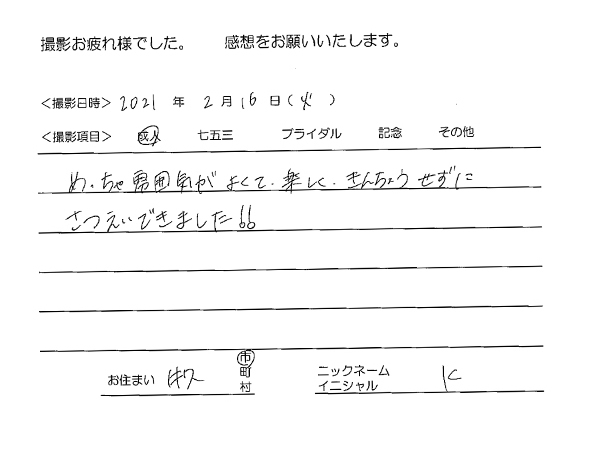 撮影お疲れ様でした。 感想をお願いいたします。
＜撮影日時＞ 2021 年 2 月 16 日（火）
＜撮影項目＞ 成人 七五三 ブライダル 記念 その他
めっちゃ雰囲気がよくて、楽しく、きんちょうせずに
さつえいできました!!
お住まい 市町村 ニックネーム イニシャル K